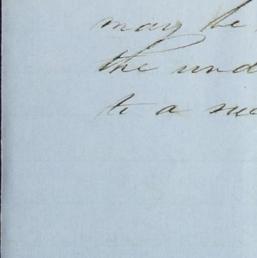 may be
the und
to a su